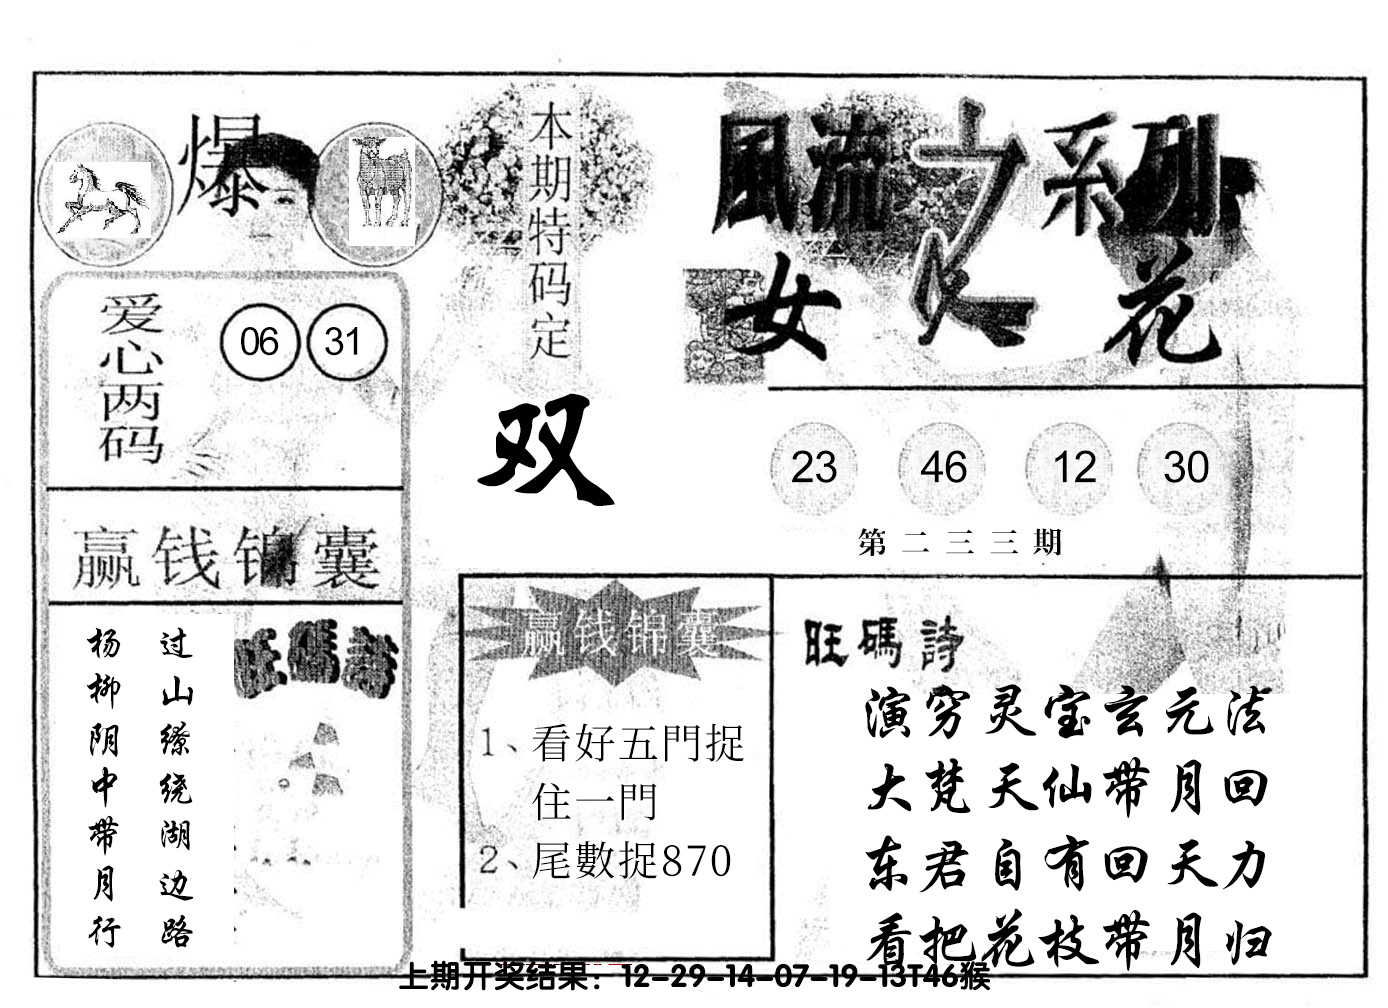 爆
本期特码定
双
風流之系列
女人花
爱心两码
06 31
23 46 12 30
第二三三期
赢钱锦囊
旺碼詩
过山缭绕湖边路
杨柳阴中带月行
赢钱锦囊
1、看好五門捉
住一門
2、尾數捉870
旺碼詩
演穷灵宝玄元法
大梵天仙带月回
东君自有回天力
看把花枝带月归
上期开奖结果：12-29-14-07-19-13T46猴